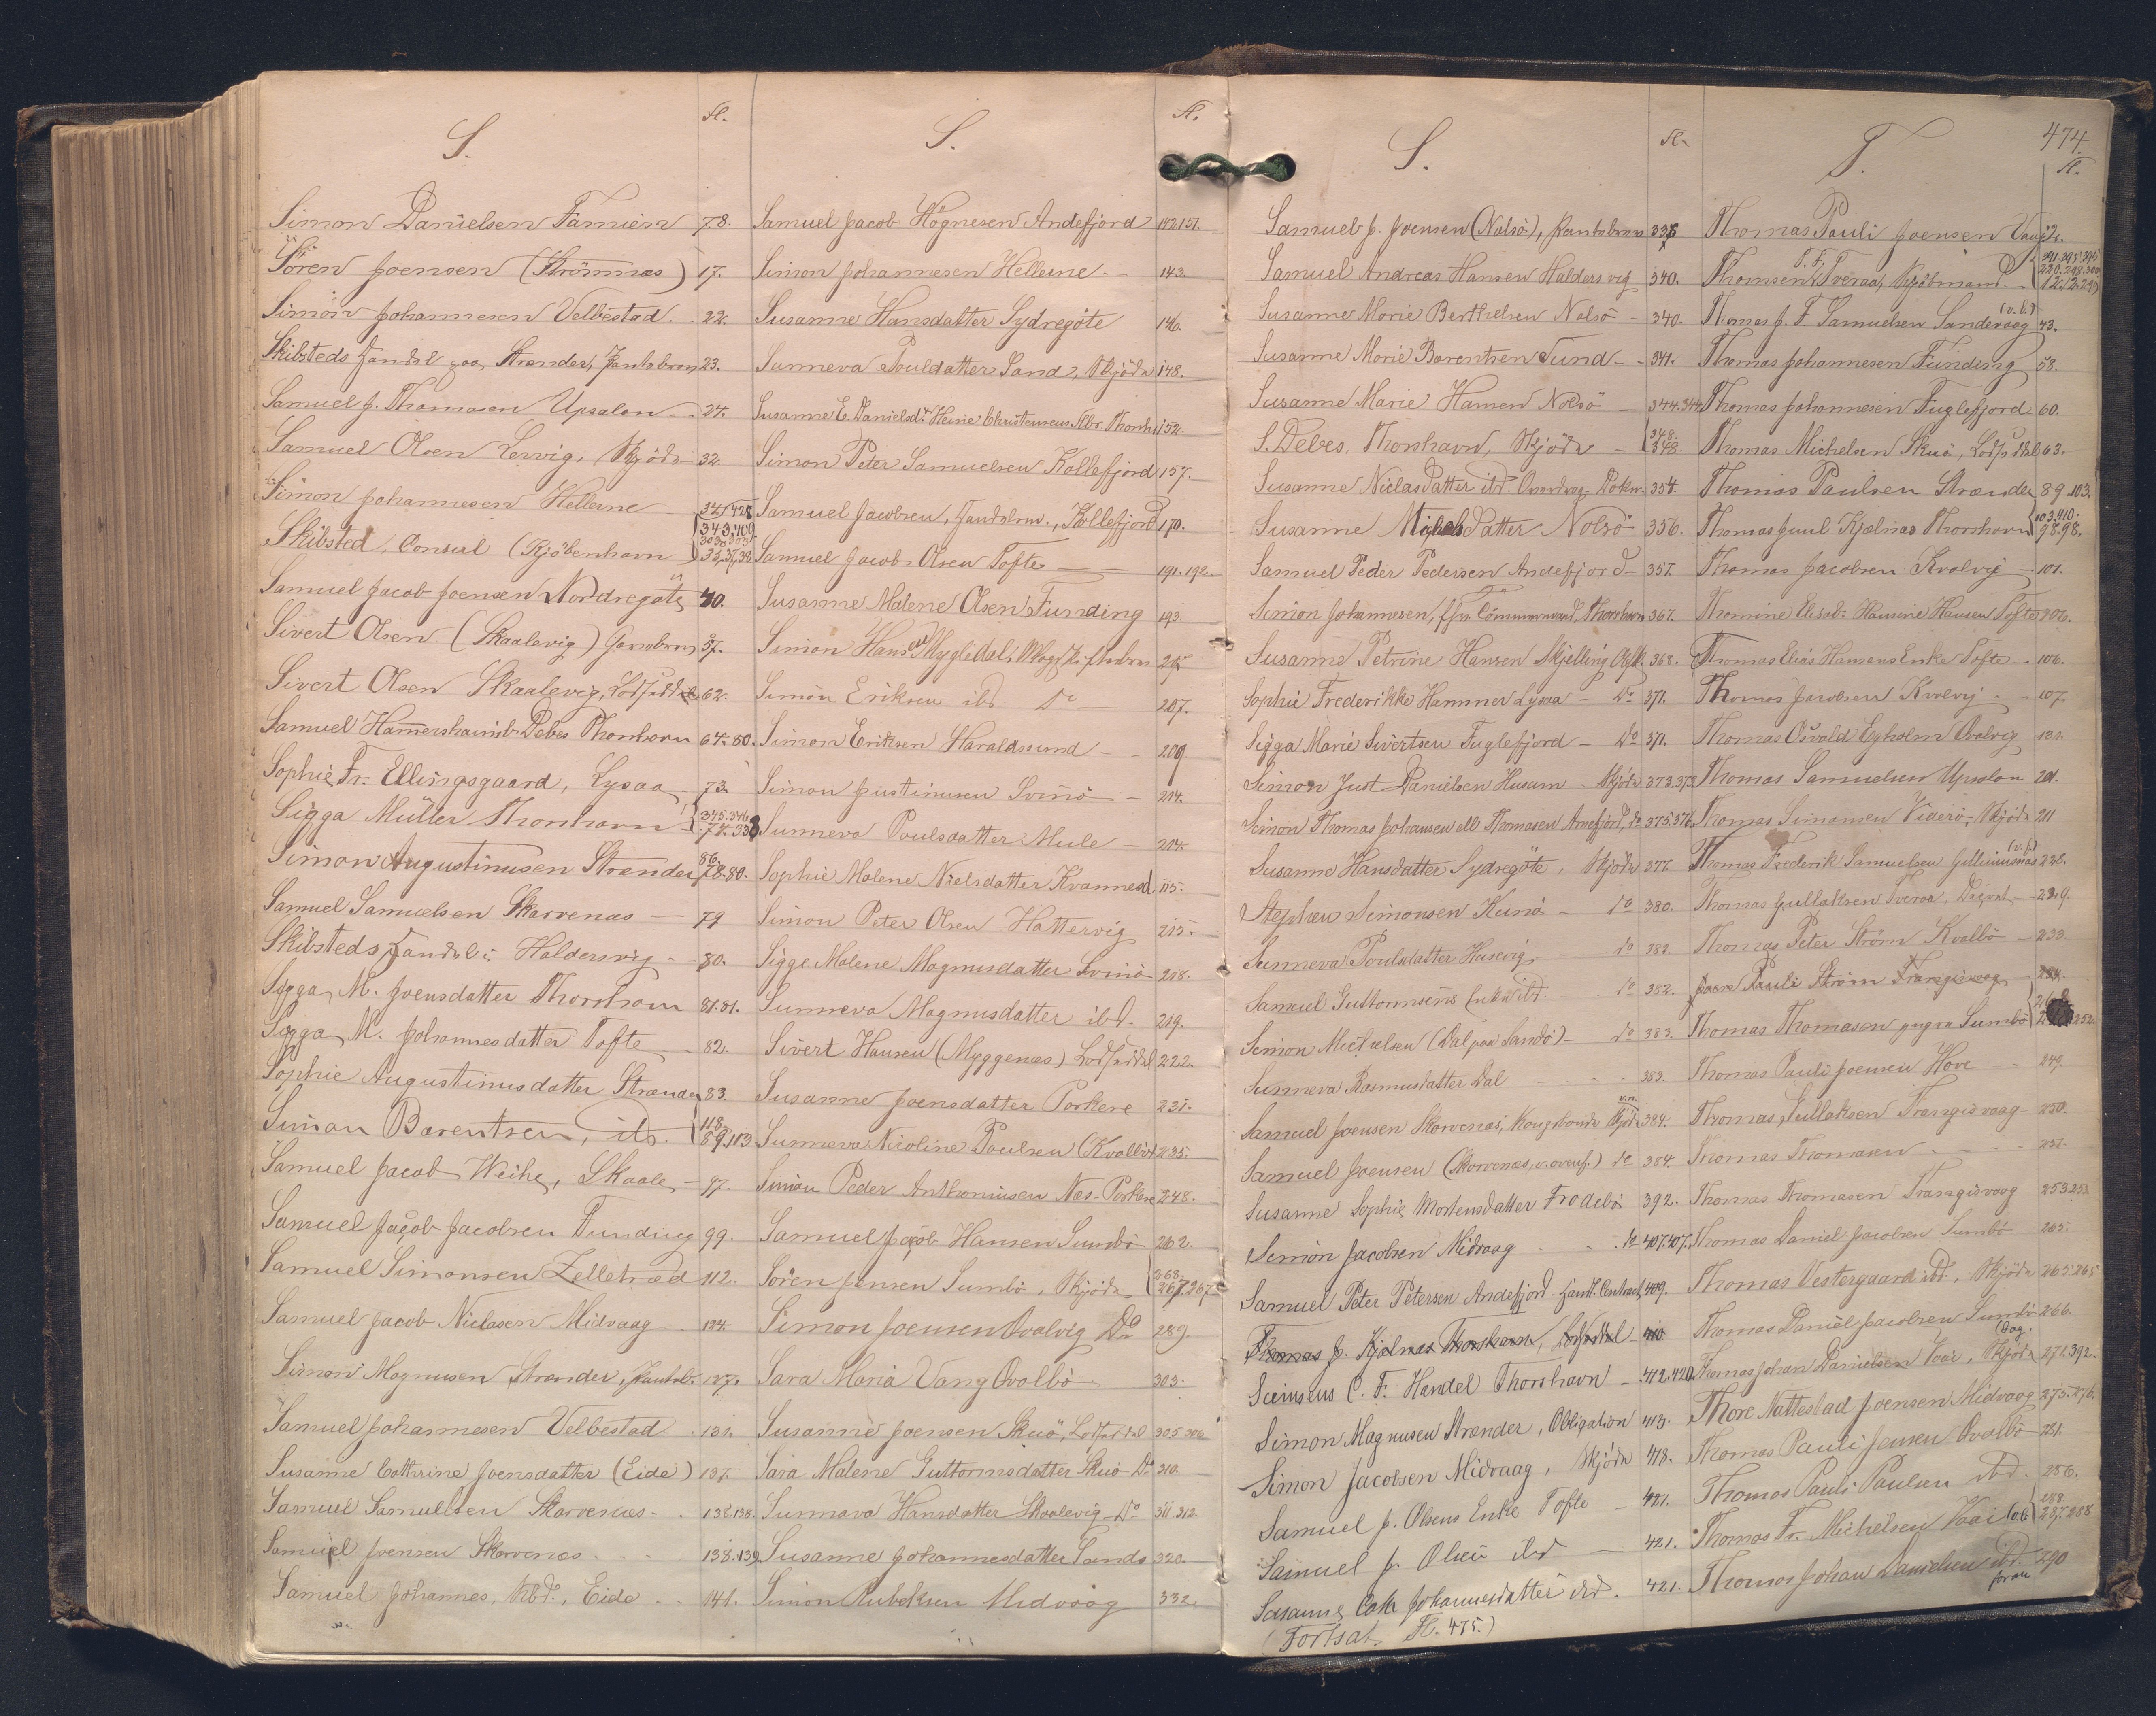 S.
Simon Danielsen Famien 78.
Sören Joensen (Strömnæs) 17.
Simon Johannesen Velbestad 22.
Skibsteds Handel paa Strænder, Pantobrev 23.
Samuel J. Thomasen Upsalon 24.
Samuel Olsen Lervig, Skjöde 32.
Simon Johannesen Hellerne
Skibsted, Consul (Kjöbenhavn
Samuel Jacob Joensen Nordregöte 40.
Sivert Olsen (Skaalevig) 57.
Sivert Olsen Skaalevig, 62.
Samuel Hammershaimb Debes Thorshavn 64.80.
Sophie Fr. Ellingsgaard, Lysaa 73.
Sigga Müller Thorshavn 345.346
Simon Augustinusen Strænder 86. 78.80.
Samuel Samuelsen Skarvenæs 79
Skibsteds Handel i Haldersvig 80.
Sigga M. Joensdatter Thorshavn 81.81.
Sigga M. Johannesdatter Tofte 82.
Sophie Augustinusdatter Strænder 83
Simon Barentsen, ibd. 118. 89.113
Samuel Jacob Weihe, Skaale 97.
Samuel Jacob Jacobsen Funding 99.
Samuel Simonsen Zelletræd 112.
Samuel Jacob Niclasen Midvaag 124.
Simon Magnusen Strænder, 127.
Samuel Johannesen Velbestad 131.
Susanne Cathrine Joensdatter (Eide) 137.
Samuel Samuelsen Skarvenæs 138.138.
Samuel Joensen Skarvenæs 138.139.
Samuel Johannes, Eide 141.
S.
Samuel Jacob Högnesen Andefjord 142.151.
Simon Johannesen Hellerne 143.
Susanne Hansdatter Sydregöte 146.
Sunneva Pouldatter Sand, Skjöde 148.
Susanne E. Danielsd. Heine Christensens Thorsh. 152.
Simon Peter Samuelsen Kollefjord 157.
Samuel Jacobsen, Kollefjord 170.
Samuel Jacob Olsen Tofte 191.192.
Susanne Malene Olsen Funding 193
Simon Hansen Mygledal
Simon Eriksen ibd Do 207.
Simon Eriksen Haraldssund 209
Simon Justinusen Svinö 214.
Sunneva Poulsdatter Mule 214.
Sophie Malene Nielsdatter Kvannesd
Simon Peter Olsen Hattervig 215.
Sigge Malene Magnusdatter Svinö 218.
Sunneva Magnusdatter ibd. 219.
Sivert Hansen (Myggenæs) 222.
Susanne Joensdatter Porkere 231.
Sunneva Nicoline Poulsen (Kvalbö 235.
Simon Peder Anthoniusen Næs-Porkere 248.
Samuel Jacob Hansen Sumbö 262.
Sören Jensen Sumbö, Skjöde 268. 267.267
Simon Joensen Qvalvig Do 289
Sara Maria Vang Qvalbö 303.
Susanne Joensen Skuö, 305.306
Sara Malene Guttormsdatter Skuö Do 310.
Sunnava Hansdatter Skaalevig Do 311.312.
Susanne Johannesdatter Sands 320.
Simon Rubeksen Midvaag 332.
474.
S.
Samuel J. Joensen (Nolsö), Pantobrev
Samuel Andreas Hansen Haldersvig 340.
Susanne Marie Berthelsen Nolsö 340.
Susanne Marie Barentsen Sund 341.
Susanne Marie Hansen Nolsö 344.344
S. Debes, Thorshavn, Skjöde 348. 348.
Susanne Niclasdatter ibd. 354.
Susanne Michelsdatter Nolsö 356.
Samuel Peder Pedersen Andefjord 357.
Simon Johannesen, Thorshavn 367.
Susanne Petrine Hansen Skjelling 368.
Sophie Frederikke Hammer Lysaa Do 371.
Sigga Marie Sivertsen Fuglefjord Do 371.
Simon Just Danielsen Husum Skjöde 373.373
Simon Thomas Johansen ell. Thomasen Arnefjord, Do 375.376
Susanne Hansdatter Sydregöte, Skjöde 377.
Stephen Simonsen Kunö Do 380.
Sunneva Poulsdatter Husevig Do 382.
Samuel Guttormsens Enke ibd. Do 382.
Simon Michelsen (Dal paa Sandö) Do 383.
Sunneva Rasmusdatter Dal 383.
Samuel Joensen Skarvenæs, Kongsbonde Skjöde 384.
Samuel Joensen (Skarvenæs, Do 384.
Susanne Sophie Mortensdatter Frodebö 392.
Simon Jacobsen Midvaag Do 407.407.
Samuel Peter Petersen Andefjord. Handl. Contract 409.
Thomas J. Kjölnæs Thorshavn, 410
C. F. Handel Thorshavn 412.420
Simon Magnusen Strænder, Obligation 413.
Simon Jacobsen Midvaag, Skjöde 418.
Samuel J. Olsens Enke Tofte 421.
Samuel J. Olsen ibd 421.
Susanne Cath. Johannesdatter ibd. 421.
(Fortsat Fl. 475.)
T.
Thomas Pauli Joensen Vaag 2.
Thomsen, T. F. Tveraa, Kjöbmand
Thomas J. F. Samuelsen Sandevaag 43.
Thomas Johannesen Funding 58.
Thomas Johannesen Fuglefjord 60.
Thomas Michelsen Skuö, 63.
Thomas Paulsen Strænder 89.103.
Thomas Juul Kjølnæs Thorshavn 103.410. 98.98.
Thomas Jacobsen Kvalvig 101.
Thomine Elisab. Hansine Hansen Tofte 106.
Thomas Elias Hansens Enke Tofte 106.
Thomas Jacobsen Kvalvig 107.
Thomas Osvald Egholm Qvalvig 131.
Thomas Samuelsen Upsalon 201.
Thomas Simonsen Viderö, Skjöde 211
Thomas Frederik Samuelsen 228.
Thomas Gullaksen Tveraa, 229.
Thomas Peter Strøm Kvalbö 233.
Joen Pauli Strøm Frangisvaag
Thomas Thomasen yngre Sumbö 252.
Thomas Pauli Joensen Hove 249.
Thomas Gullaksen Frangisvaag 250.
Thomas Thomasen 251.
Thomas Thomasen Frangisvaag 253.253
Thomas Daniel Jacobsen Sumbö 265.
Thomas Vestergaard ibd., Skjöde 265.265
Thomas Daniel Jacobsen Sumbö 266.
Thomas Johan Danielsen Vaai, Skjöde 271.392.
Thore Nattestad Joensen Midvaag 275.276.
Thomas Pauli Jensen Qvalbö 281.
Thomas Pauli Paulsen ibd. 286.
Thomas Fr. Michelsen Vaai 288. 287.288
Thomas Johan Danielsen ibd. foran 290